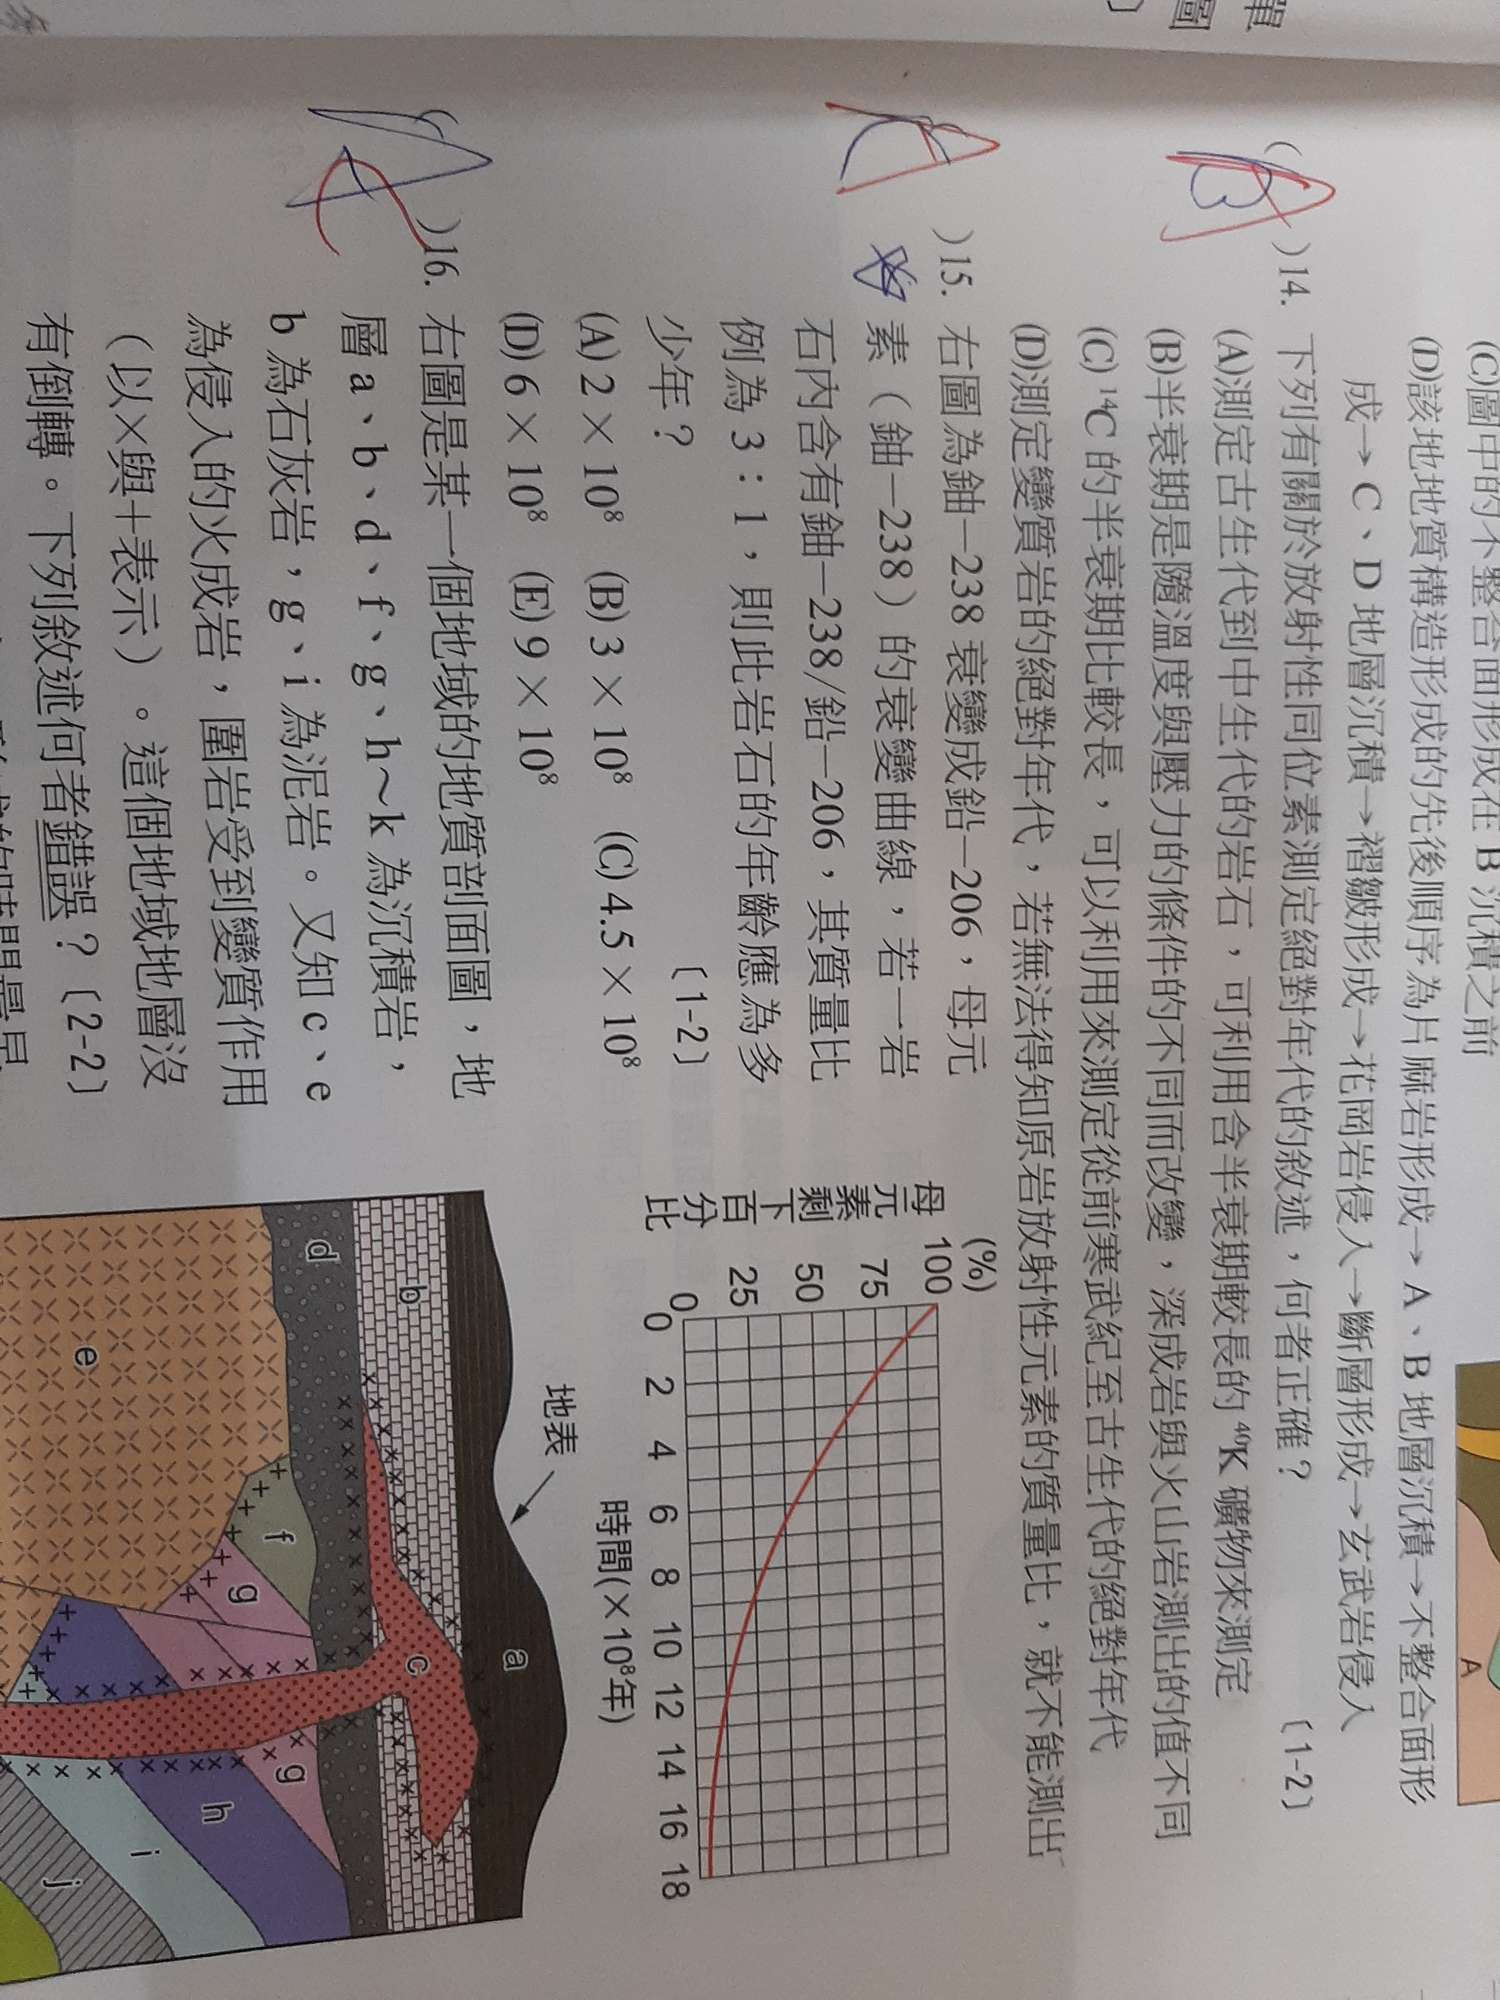 單
圖
(C)圖中的不整合面形成在 B 沉積之前
(D)該地地質構造形成的先後順序為片麻岩形成→ A、B 地層沉積→不整合面形
成→ C、D 地層沉積→褶皺形成→花岡岩侵入→斷層形成→玄武岩侵入
A
( B A )14. 下列有關於放射性同位素測定絕對年代的敘述，何者正確？ 〔1-2〕
(A)測定古生代到中生代的岩石，可利用含半衰期較長的 ⁴⁰K 礦物來測定
(B)半衰期是隨溫度與壓力的條件的不同而改變，深成岩與火山岩測出的值不同
(C) ¹⁴C 的半衰期比較長，可以利用來測定從前寒武紀至古生代的絕對年代
(D)測定變質岩的絕對年代，若無法得知原岩放射性元素的質量比，就不能測出
)15. 右圖為鈾－238 衰變成鉛－206，母元
素（鈾－238）的衰變曲線，若一岩
石內含有鈾－238/鉛－206，其質量比
例為 3：1，則此岩石的年齡應為多
少年？ 〔1-2〕
(A) 2 × 10⁸ (B) 3 × 10⁸ (C) 4.5 × 10⁸
(D) 6 × 10⁸ (E) 9 × 10⁸
母元素剩下百分比
(%)
100
75
50
25
0
0 2 4 6 8 10 12 14 16 18
時間(×10⁸年)
)16. 右圖是某一個地域的地質剖面圖，地
層 a、b、d、f、g、h～k 為沉積岩，
b 為石灰岩，g、i 為泥岩。又知 c、e
為侵入的火成岩，圍岩受到變質作用
（以×與＋表示）。這個地域地層沒
有倒轉。下列敘述何者錯誤？〔2-2〕
地表
a
b
c
d
e
f
g
g
h
i
j